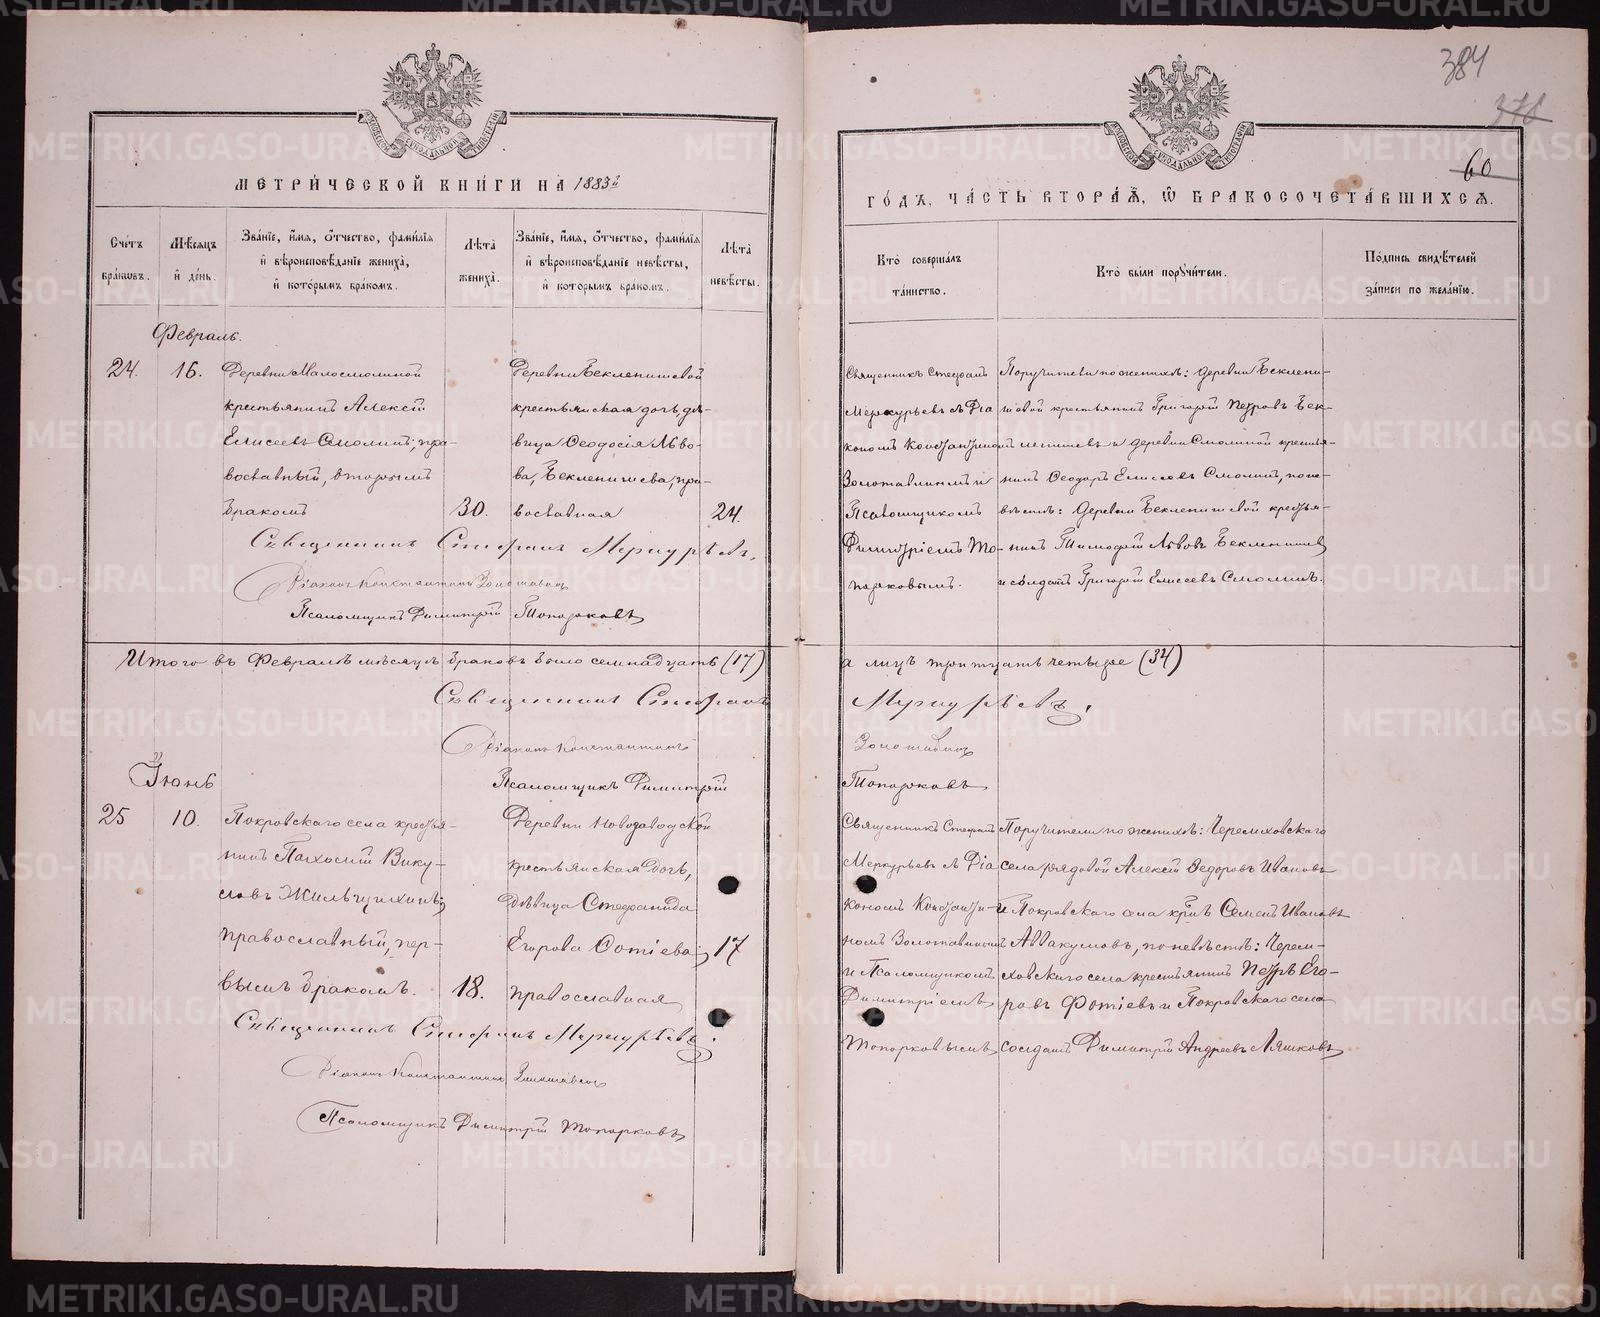 384
376
60
МЕТРИЧЕСКОЙ КНИГИ НА 1883й
Счетъ браковъ.
Мѣсяцъ и день.
Званіе, имя, отчество, фамилія и вѣроисповѣданіе жениха, и которымъ бракомъ.
Лѣта жениха.
Званіе, имя, отчество, фамилія и вѣроисповѣданіе невѣсты, и которымъ бракомъ.
Лѣта невѣсты.
Февраль.
24. 16.
Деревни Малосмолиной
крестьянинъ Алексѣй
Елисеевъ Смолинъ, пра-
вославный, вторымъ
бракомъ
30.
Деревни Бекленишевой
крестьянская дочь, дѣ-
вица Ѳеодосія Льво-
ва, Бекленишева, пра-
вославная
24.
Священникъ Стефанъ Меркурьевъ.
Діаконъ Константинъ Золотавинъ
Псаломщикъ Димитрій Топорковъ
Итого въ Февралѣ мѣсяцѣ браковъ было семнадцать (17)
Священникъ Стефанъ
Діаконъ Константинъ
Псаломщикъ Димитрій
Іюнь
25 10.
Покровскаго села кресть-
нинъ Пахомій Вику-
ловъ Жильцихинъ,
православный, пер-
вымъ бракомъ.
18.
Деревни Новозаводской
крестьянская дочь,
дѣвица Стефанида
Егорова Фотіева,
православная
17
Священникъ Стефанъ Меркурьевъ.
Діаконъ Константинъ Золотавинъ
Псаломщикъ Димитрій Топорковъ
ГОДЪ, ЧАСТЬ ВТОРАЯ, Ѡ БРАКОСОЧЕТАВШИХСЯ.
Кто совершалъ таинство.
Кто были поручители.
Подпись свидѣтелей записи по желанію.
Священникъ Стефанъ
Меркурьевъ съ Діа
кономъ Константиномъ
Золотавинымъ и
Псаломщикомъ
Димитріемъ То-
порковымъ.
Поручители по женихѣ: деревни Беклени-
шевой крестьянинъ Григорій Петровъ Бек-
ленишевъ и деревни Смолиной крестья-
нинъ Ѳеодоръ Елисеевъ Смолинъ, по не-
вѣстѣ: деревни Бекленишевой кресть-
нинъ Тимофей Львовъ Бекленишевъ
и солдатъ Григорій Елисеевъ Смолинъ.
а лицъ тритцать четыре (34)
Меркурьевъ.
Золотавинъ
Топорковъ
Священникъ Стефанъ
Меркурьевъ съ Діа
кономъ Константи-
номъ Золотавинымъ
и Псаломщикомъ
Димитріемъ
Топорковымъ
Поручители по женихѣ: Черемховскаго
села рядовой Алексѣй Ѳедоровъ Ивановъ
и Покровскаго села крнъ Семенъ Ивановъ
Аввакумовъ, по невѣстѣ: Черем-
ховскаго села крестьянинъ Петръ Его-
ровъ Фотіевъ и Покровскаго села
солдатъ Димитрій Андреевъ Ляшковъ